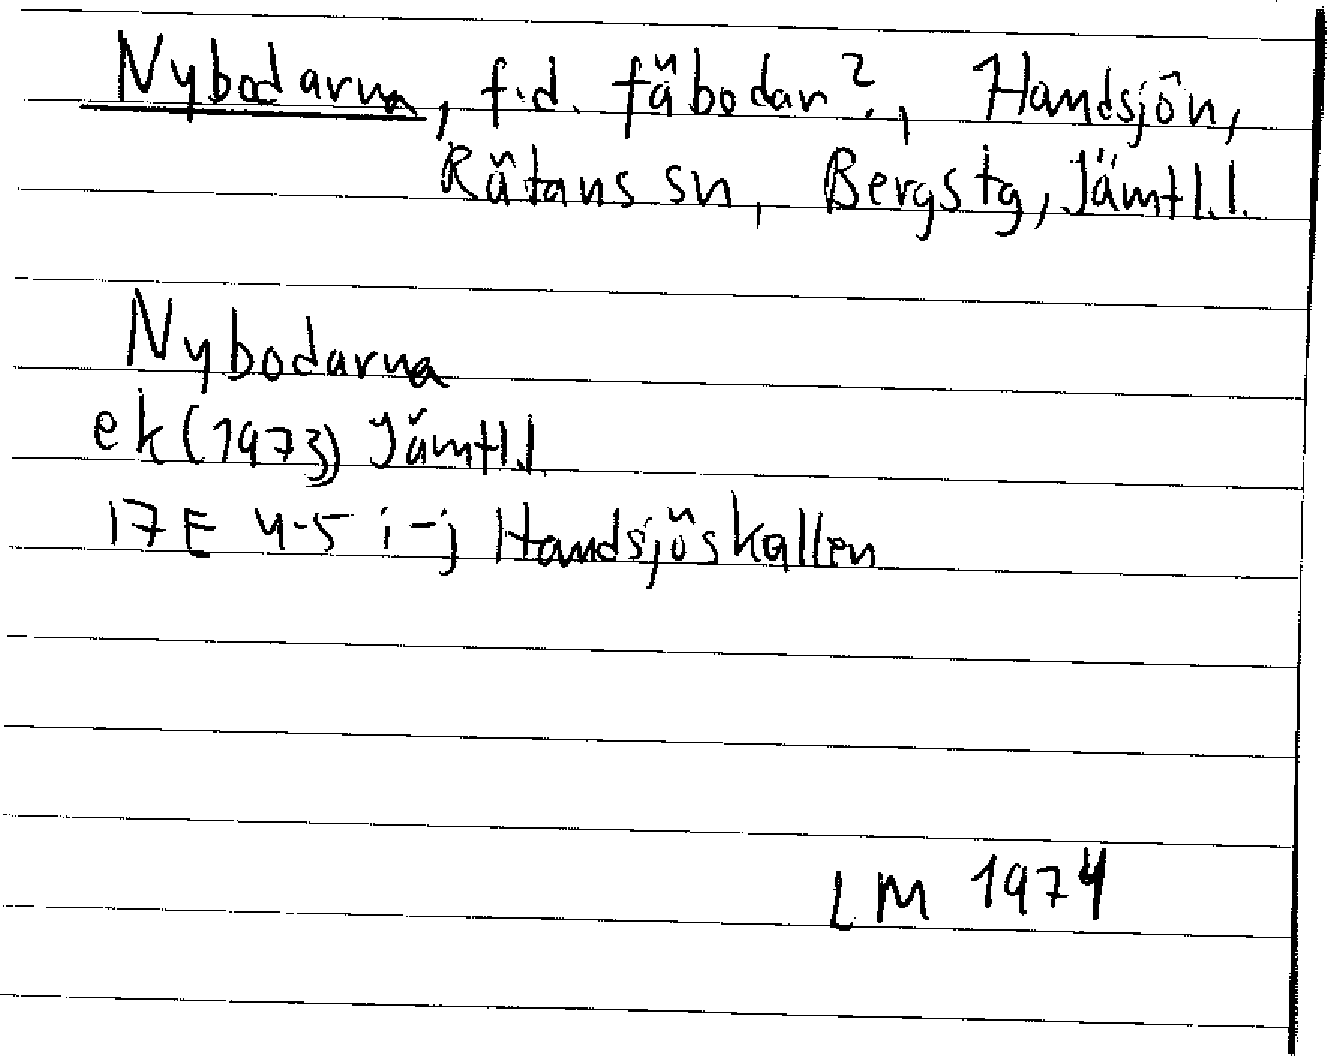 Nybodarna, f.d. fäbodar?, Handsjön,
Rätans sn, Bergs tg, Jämtl.l.
Nybodarna
ek (1973) Jämtl.l
17E 4-5 i-j Handsjöskallen
LM 1974